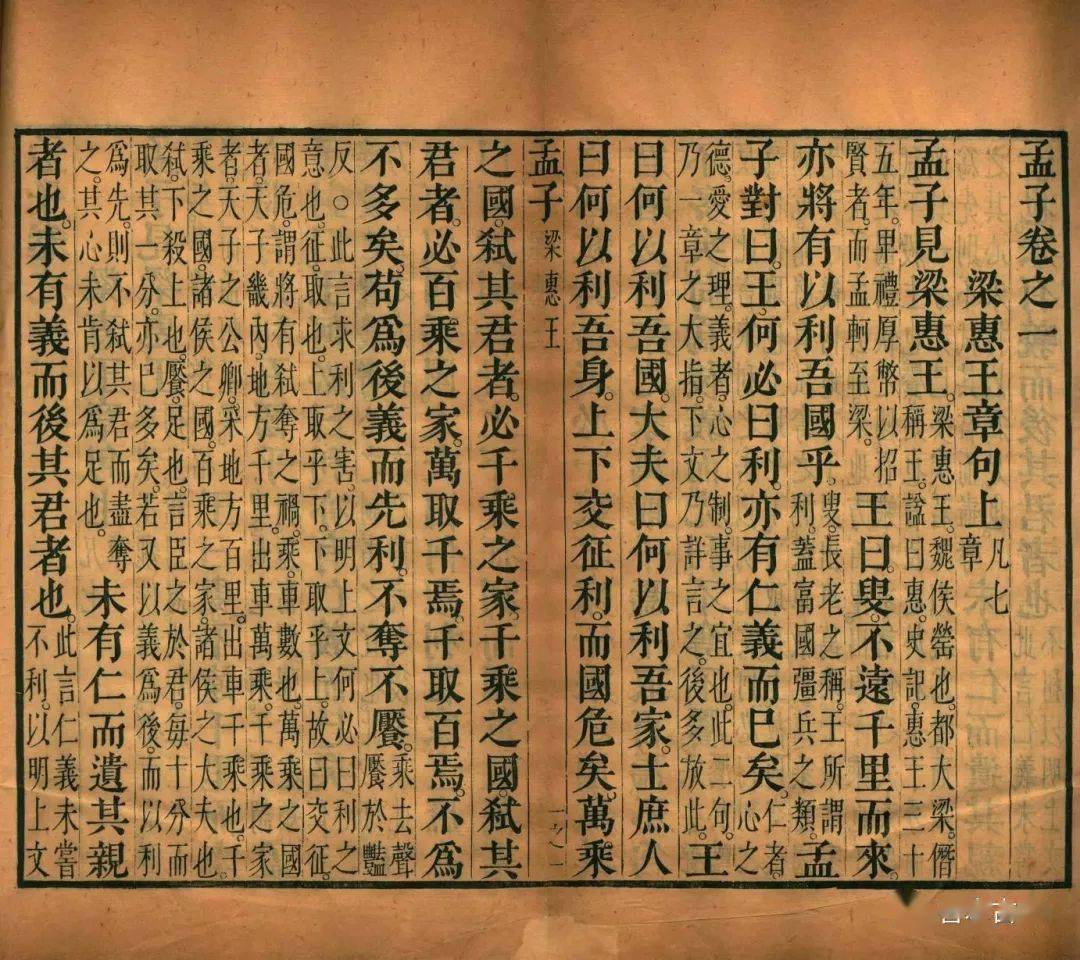 孟子卷之一
梁惠王章句上凡七章
孟子見梁惠王。梁惠王。魏侯罃也。都大梁。僭稱王。諡曰惠。史記。惠王三十
五年。卑禮厚幣以招賢者。而孟軻至梁。王曰。叟。不遠千里而來。
亦將有以利吾國乎。叟。長老之稱。王所謂利。蓋富國彊兵之類。孟
子對曰。王。何必曰利。亦有仁義而已矣。仁者。心之
德。愛之理。義者。心之制。事之宜也。此二句。乃一章之大指。下文乃詳言之。後多放此。王
曰何以利吾國。大夫曰何以利吾家。士庶人
曰何以利吾身。上下交征利。而國危矣。萬乘
孟子 梁惠王 一
之國。弒其君者。必千乘之家。千乘之國。弒其
君者。必百乘之家。萬取千焉。千取百焉。不爲
不多矣。苟爲後義而先利。不奪不饜。乘去聲。饜於豔
反。○此言求利之害。以明上文何必曰利之意也。征。取也。上取乎下。下取乎上。故曰交征。
國危。謂將有弒奪之禍。乘。車數也。萬乘之國者。天子畿內。地方千里。出車萬乘。千乘之家
者。天子之公卿。采地方百里。出車千乘也。千乘之國。諸侯之國。百乘之家。諸侯之大夫也。
弒。下殺上也。饜。足也。言臣之於君。每十分而取其一分。亦已多矣。若又以義爲後。而以利
爲先。則不弒其君而盡奪之。其心未肯以爲足也。未有仁而遺其親
者也。未有義而後其君者也。此言仁義未嘗不利。以明上文